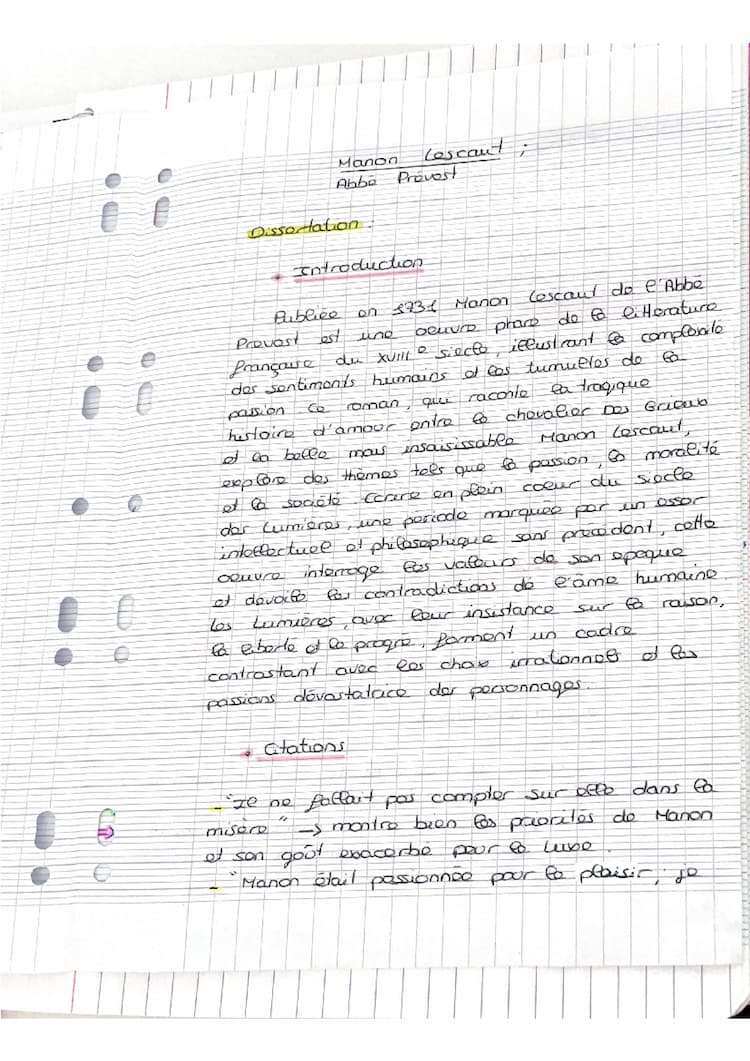 Manon Lescaut ;
Abbé Prévost
Dissertation :
Introduction
Publiée en 1731 Manon Lescaut de l'Abbé
Prévost est une oeuvre phare de la littérature
française du XVIIIe siècle, illustrant la complexité
des sentiments humains et les tumueltes de la
passion ce roman, qui raconte la tragique
histoire d'amour entre le chevalier Des Grieux
et la belle mais insaisissable Manon Lescaut,
explore des thèmes tels que la passion, la moralité
et la société. Écrire en plein coeur du siècle
des Lumières, une période marquée par un essor
intellectuel et philosophique sans précédent, cette
oeuvre interroge les valeurs de son époque
et dévoile les contradictions de l'âme humaine
les Lumières, avec leur insistance sur la raison,
la liberté et le progrè, forment un cadre
contrastant avec les choix irrationnels et les
passions dévastatrice des personnages.
Citations
- "Il ne fallait pas compter sur elle dans la
misère" → montre bien les priorités de Manon
et son goût exacerbé pour le luxe.
- "Manon était passionnée pour le plaisir ; je